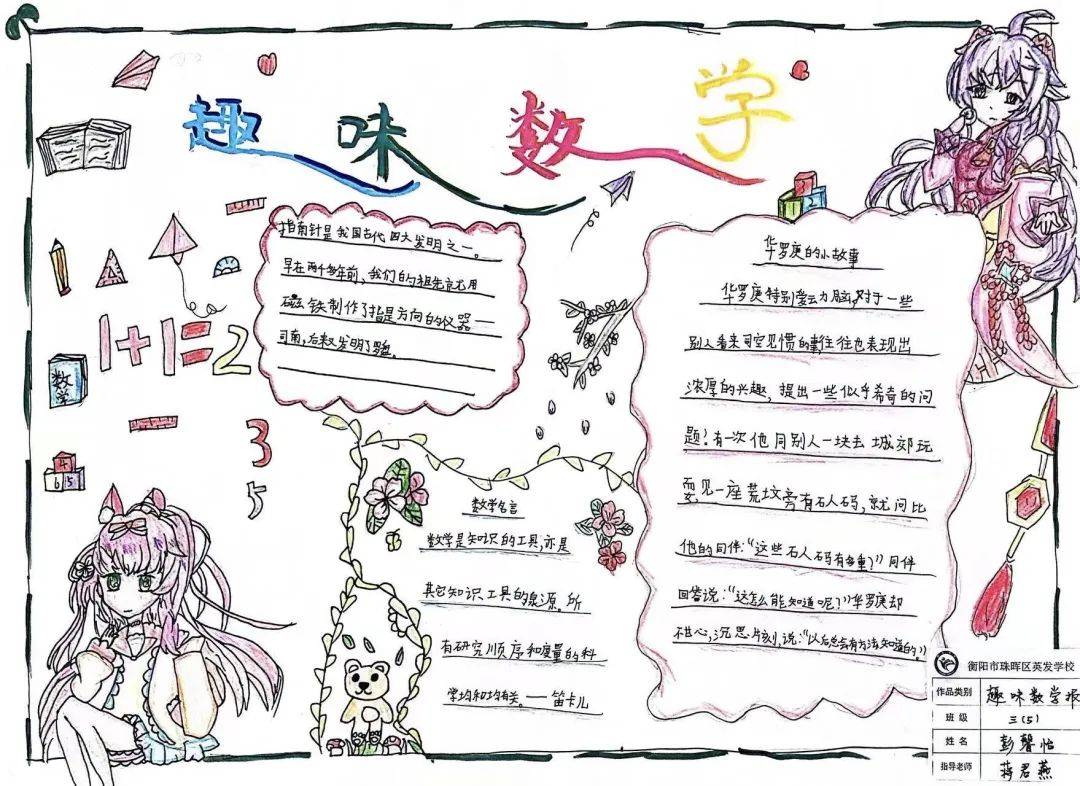 趣味数学
1+1=2
3
5
数学
4
6 5
2
指南针是我国古代四大发明之一。
早在两千多年前,我们的祖先就用
磁铁制作了指是方向的仪器一
司南,后来又发明了罗盘。
数学名言
数学是知识的工具,亦是
其它知识工具的泉源。所
有研究顺序和度量的科
学均和均有关。——笛卡儿
华罗庚的小故事
华罗庚特别爱云力脑,对于一些
别人看来司空见惯的事往往也表现出
浓厚的兴趣,提出一些似乎希奇的问
题!有一次他同别人一块去城郊玩
耍见一座荒坟旁有石人码,就问比
他的同伴:“这些石人码有多重?”同伴
回答说:“这怎么能知道呢?”华罗庚却
不甘心,沉思片刻,说:“以后总会有方法知道的。”
衡阳市珠晖区英发学校
作品类别 趣味数学报
班 级 三(5)
姓 名 彭馨怡
指导老师 蒋君燕